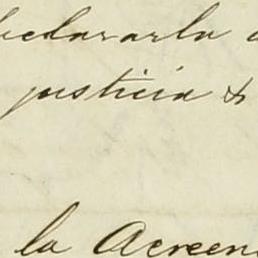 declararla
justicia &
la Acreen